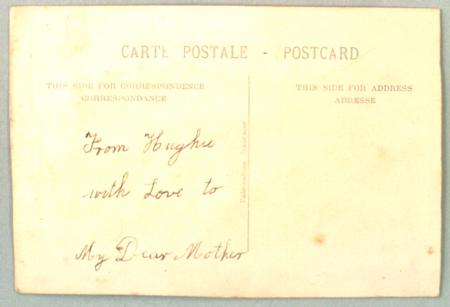 CARTE POSTALE - POSTCARD
THIS SIDE FOR CORRESPONDENCE
CORRESPONDANCE
THIS SIDE FOR ADDRESS
ADRESSE
From Hughie
with Love to
My Dear Mother